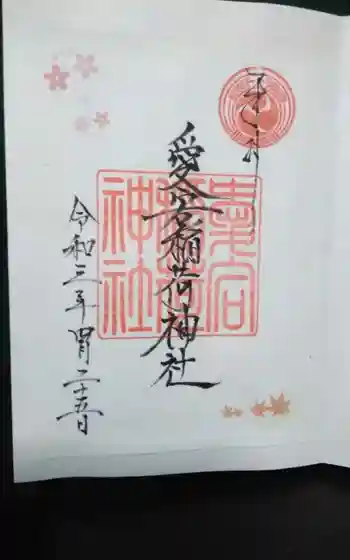 愛宕稲荷神社
愛宕
稲荷
神社
令和三年四月二十五日